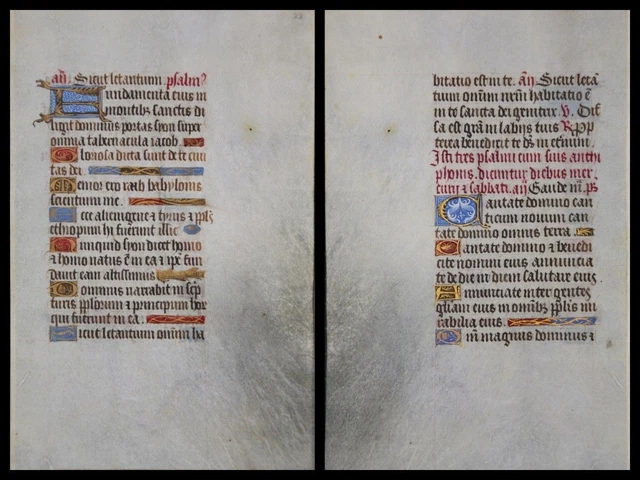 añ. Sicut letantium. psalm⁹
Fundamenta eius in
montibz sanctis di
ligit dominus portas syon super
omnia tabernacula iacob.
Gloriosa dicta sunt de te ciui
tas dei.
Memor ero raab babylonis
scientium me.
Ecce alienigene et tyrus et ppls
ethiopum hi fuerunt illic
Nunquid syon dicet homo
et homo natus est in ea et ipse fun
dauit eam altissimus
Dominus narrabit in scrip
turis pplorum et principum hor
qui fuerunt in ea.
Sicut letantium omnium ha
bitatio est in te. añ. Sicut letã
tium omnium nrm̃ habitatio ẽ
in te sancta dei genitrix. V. Diff
sa est grã in labijs tuis R. Pp
terea benedixit te ds̃ in eternũ.
Isti tres psalmi cum suis anthi
phonis. dicuntur diebus mer
curij et sabbati. añ Gaude m̃. ps
Cantate domino can
ticum nouum can
tate domino omnis terra
Cantate domino et benedi
cite nomini eius annuncia
te de die in diem salutare eius.
Annunciate inter gentes
gloriam eius in omnibz pplis mi
rabilia eius.
Qm̃ magnus dominus et